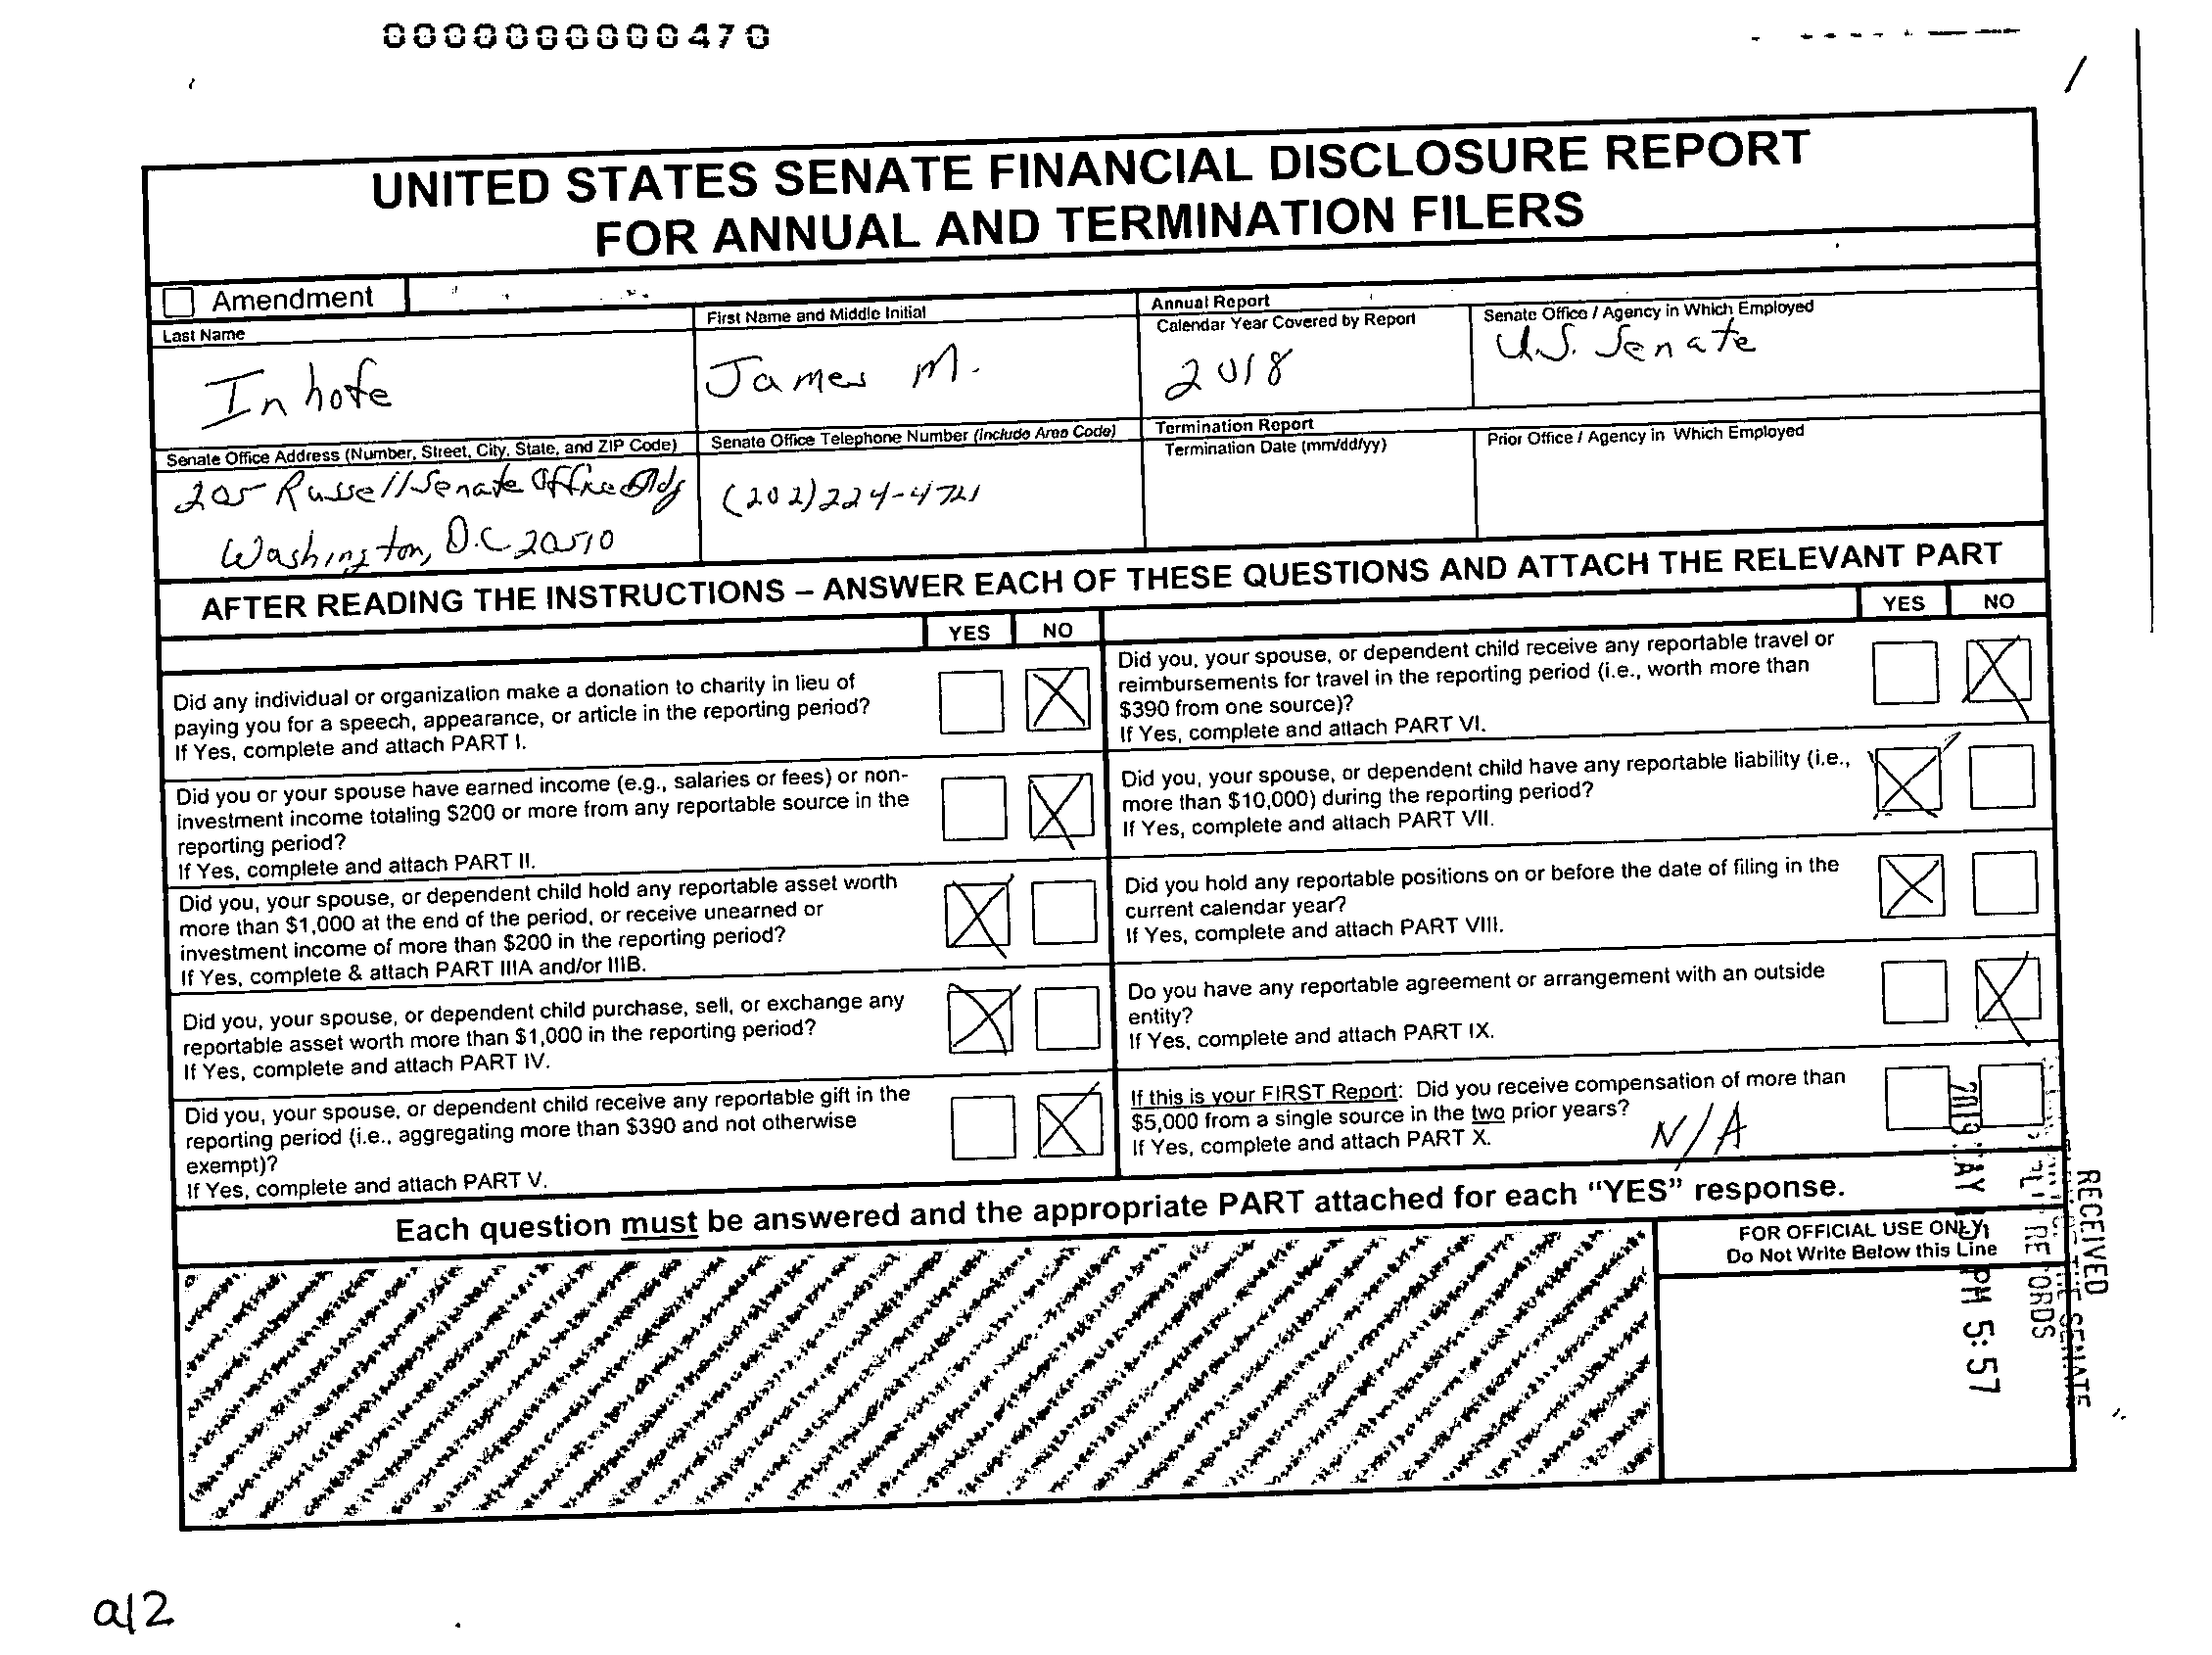 0000000000470
UNITED STATES SENATE FINANCIAL DISCLOSURE REPORT
FOR ANNUAL AND TERMINATION FILERS
Amendment
Last Name
Inhofe
First Name and Middle Initial
James M.
Annual Report
Calendar Year Covered by Report
2018
Senate Office / Agency in Which Employed
U.S. Senate
Senate Office Address (Number, Street, City, State, and ZIP Code)
205 Russell Senate Office Bldg
Washington, D.C 20510
Senate Office Telephone Number (Include Area Code)
(202)224-4721
Termination Report
Termination Date (mm/dd/yy)
Prior Office / Agency in Which Employed
AFTER READING THE INSTRUCTIONS – ANSWER EACH OF THESE QUESTIONS AND ATTACH THE RELEVANT PART
YES NO
Did any individual or organization make a donation to charity in lieu of
paying you for a speech, appearance, or article in the reporting period?
If Yes, complete and attach PART I.
Did you or your spouse have earned income (e.g., salaries or fees) or non-
investment income totaling $200 or more from any reportable source in the
reporting period?
If Yes, complete and attach PART II.
Did you, your spouse, or dependent child hold any reportable asset worth
more than $1,000 at the end of the period, or receive unearned or
investment income of more than $200 in the reporting period?
If Yes, complete & attach PART IIIA and/or IIIB.
Did you, your spouse, or dependent child purchase, sell, or exchange any
reportable asset worth more than $1,000 in the reporting period?
If Yes, complete and attach PART IV.
Did you, your spouse, or dependent child receive any reportable gift in the
reporting period (i.e., aggregating more than $390 and not otherwise
exempt)?
If Yes, complete and attach PART V.
YES NO
Did you, your spouse, or dependent child receive any reportable travel or
reimbursements for travel in the reporting period (i.e., worth more than
$390 from one source)?
If Yes, complete and attach PART VI.
Did you, your spouse, or dependent child have any reportable liability (i.e.,
more than $10,000) during the reporting period?
If Yes, complete and attach PART VII.
Did you hold any reportable positions on or before the date of filing in the
current calendar year?
If Yes, complete and attach PART VIII.
Do you have any reportable agreement or arrangement with an outside
entity?
If Yes, complete and attach PART IX.
If this is your FIRST Report: Did you receive compensation of more than
$5,000 from a single source in the two prior years?
If Yes, complete and attach PART X.
N/A
Each question must be answered and the appropriate PART attached for each “YES” response.
FOR OFFICIAL USE ONLY
Do Not Write Below this Line
RECEIVED
THE SENATE
PM 5:57
a12